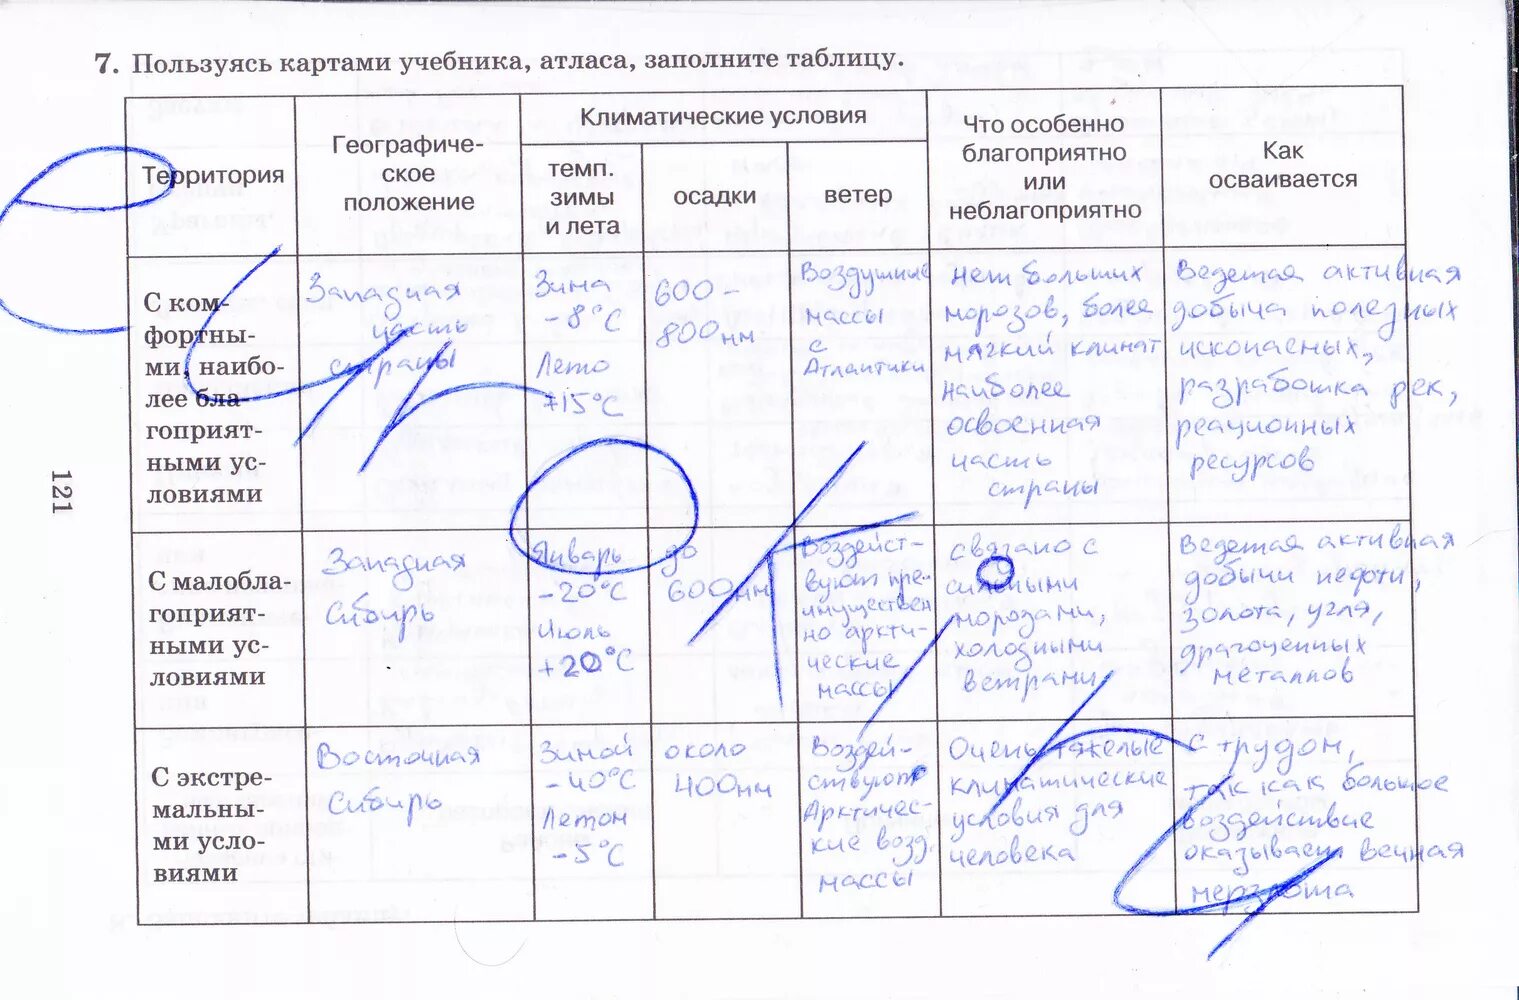 7. Пользуясь картами учебника, атласа, заполните таблицу.
Территория
Географиче-
ское
положение
Климатические условия
темп.
зимы
и лета
осадки
ветер
Что особенно
благоприятно
или
неблагоприятно
Как
осваивается
С ком-
фортны-
ми, наибо-
лее бла-
гоприят-
ными ус-
ловиями
Западная
часть
страны
Зима
-8°С
Лето
+15°С
600-
800мм
Воздушные
массы
с
Атлантики
Нет больших
морозов, более
мягкий климат
наиболее
освоенная
часть
страны
Ведется активная
добыча полезных
ископаемых,
разработка рек,
реационных
ресурсов
С малобла-
гоприят-
ными ус-
ловиями
Западная
Сибирь
Январь
-20°С
Июль
+20°С
до
600мм
Воздейст-
вуют пре-
имуществен
но аркти-
ческие
массы
связано с
сильными
морозами,
холодными
ветрами
Ведется активная
добычи нефти,
золота, угля,
драгоценных
металлов
С экстре-
мальны-
ми усло-
виями
Восточная
Сибирь
Зимой
-40°С
Летом
-5°С
около
400мм
Воздей-
ствуют
Арктичес-
кие возд.
массы
Очень тяжелые
климатические
условия для
человека
С трудом,
так как большое
воздействие
оказывает вечная
мерзлота
121